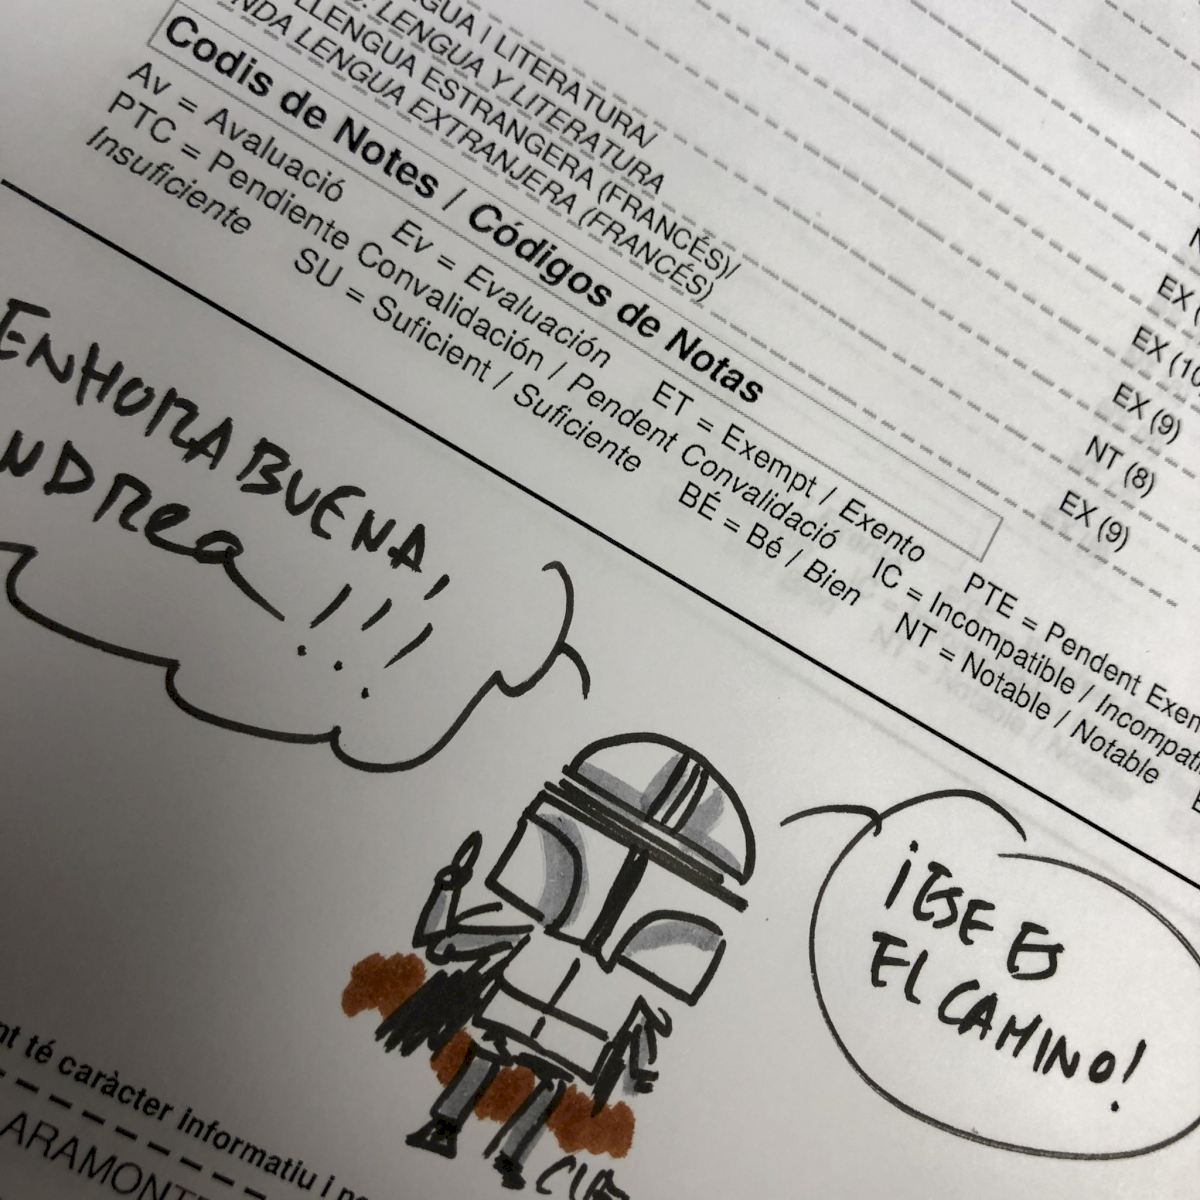 GUA I LITERATURA/
LENGUA Y LITERATURA
LLENGUA ESTRANGERA (FRANCÉS)/
NDA LENGUA EXTRANJERA (FRANCÉS)
EX (
EX (10
EX (9)
NT (8)
EX (9)
Codis de Notes / Códigos de Notas
Av = Avaluació Ev = Evaluación ET = Exempt / Exento PTE = Pendent Exen
PTC = Pendiente Convalidación / Pendent Convalidació IC = Incompatible / Incompati
Insuficiente SU = Suficient / Suficiente BÉ = Bé / Bien NT = Notable / Notable
ENHORABUENA,
NDREA!!!
¡ESE ES
EL CAMINO!
nt té caràcter informatiu i no
ARAMONT